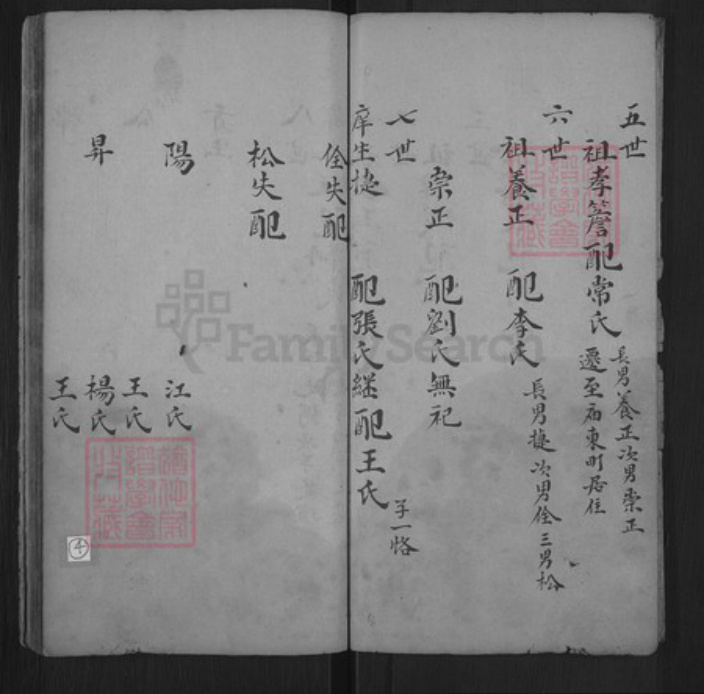 五世
祖孝簷配常氏 長男養正次男崇正
遷至庙東町居住
六世
祖養正 配李氏 長男捷次男佺三男松
崇正 配劉氏無祀
七世
庠生捷 配張氏継配王氏 子一恪
佺失配
松失配
陽 江氏
王氏
昇 楊氏
王氏
④
FamilySearch